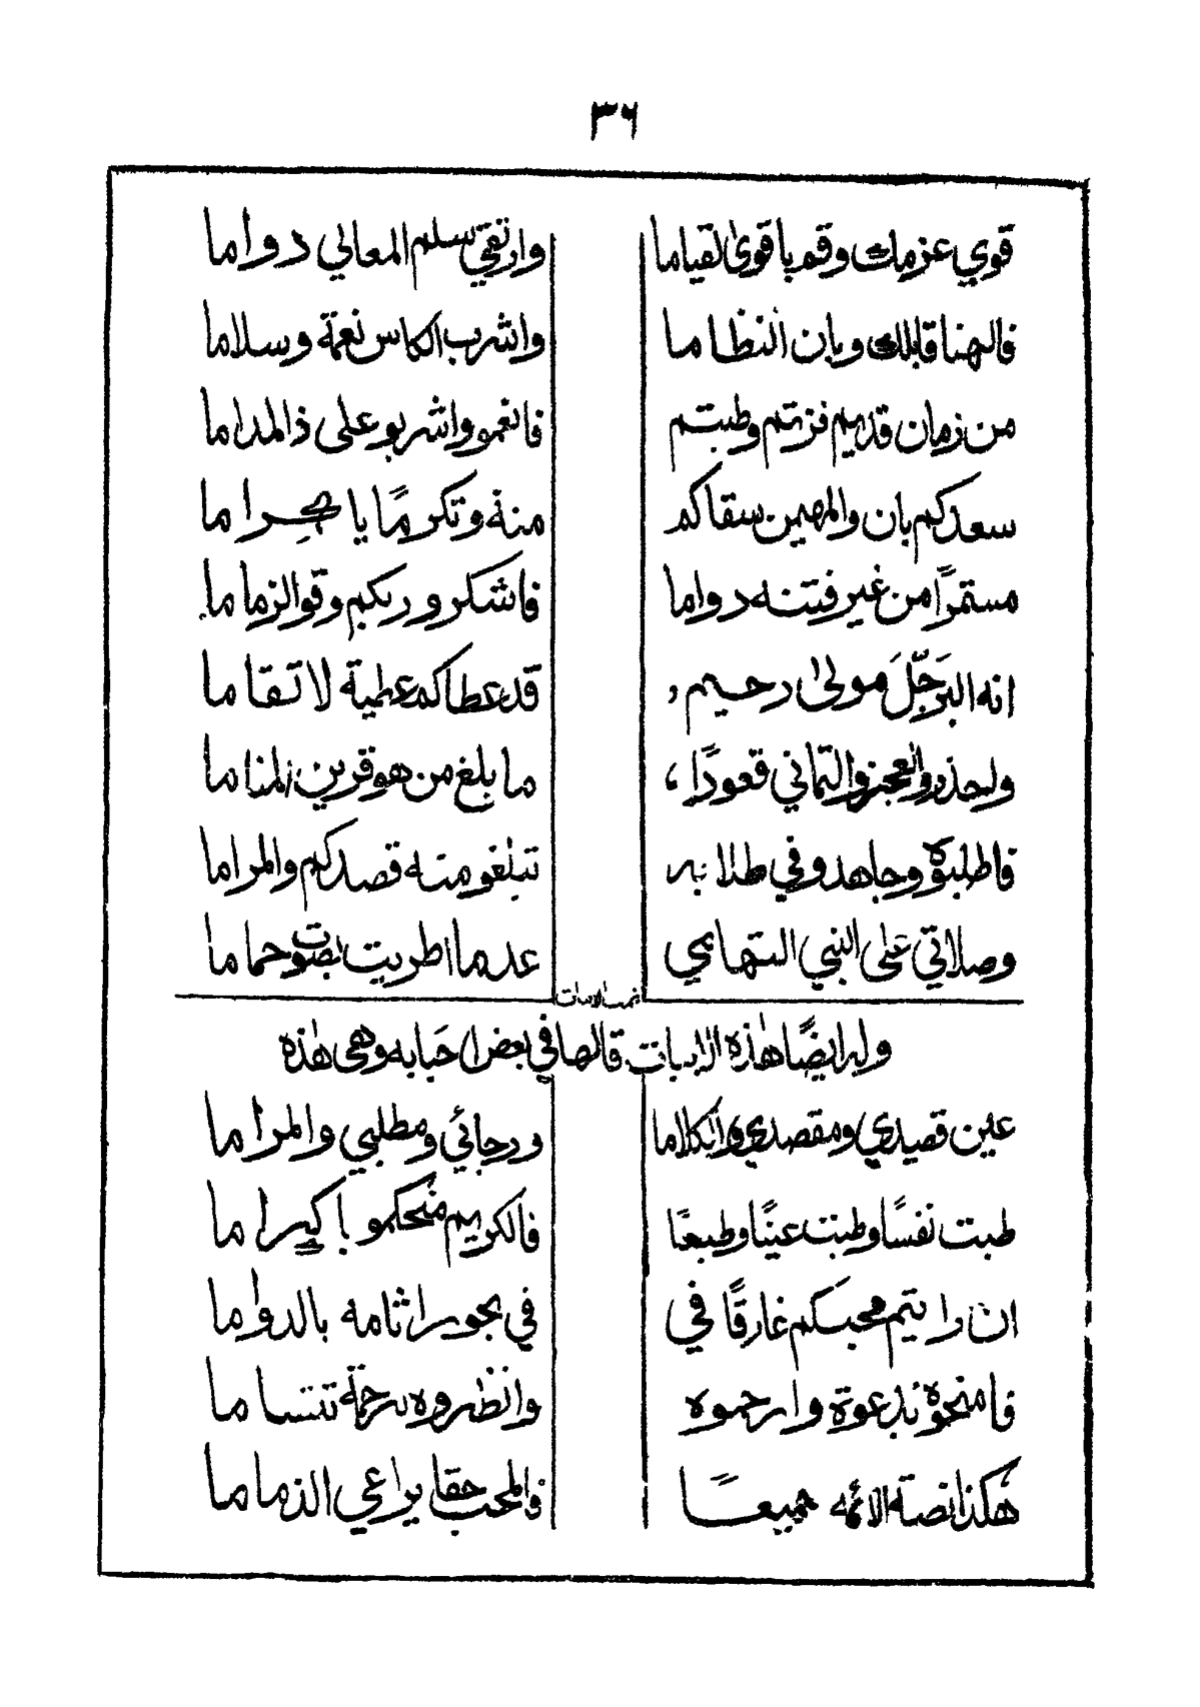 ٣٦
قوي عزمك وقم يا قوى لقياما وارتقي سلم المعالي دواما
فالهنا قابلك وبان النظاما واشرب الكاس نعمة وسلاما
من زمان قديم فزتم وطبتم فانعمو واشربو على ذالمداما
سعدكم بان والمهيمن سقاكم منه وتكرمًا يا
مستمرًا من غير فتنه دواما فاشكرو ربكم وقوالزماما
انه البر جَلَّ مولىٰ رحيم، قد عطاكم عطية لا تقاما
ولحذرو العجز والتماني قعودًا، ما بلغ من هو قرين المناما
فاطلبوه وجاهدو في طلابه تبلغو منه قصدكم والمراما
وصلاتي على النبي التهامي عد ما اطربت بصوت حماما
تمت الابيات
وله ايضًا هٰذه الابيات قالها في بعض احَبابه وهي هٰذه
عين قصيدي ومقصدي والكلاما ورجائي ومطلبي والمراما
طبت نفسًا وطبت عينًا وطبعًا فالكريم منحكمو يا كبيراما
ان رايتم محبكم غارقًا في في بحور اثامه بالدواما
فامنحوه بدعوة وارحموه وانظروه برحمة تتساما
هٰكذا نصة الائمه جميعًا فالمحب حقا يراعي الذماما